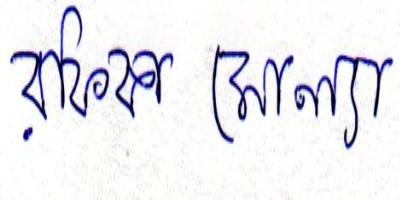 রফিকুল মোল্যা